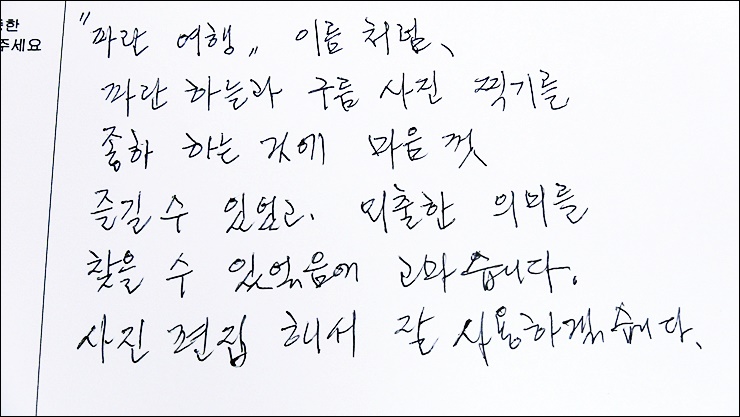 한
주세요
"파란 여행„ 이름 처럼、
파란 하늘과 구름 사진 찍기를
좋하 하는 것에 마음 껏
즐길 수 있었고. 외출한 의미를
찾을 수 있었음에 고마습니다.
사진 편집 해서 잘 사용하겠습니다.